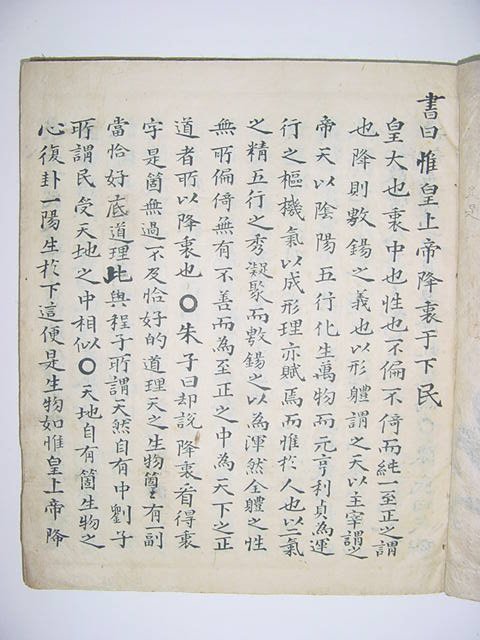 書曰惟皇上帝降衷于下民
皇大也衷中也性也不偏不倚而純一至正之謂
也降則敷錫之義也以形體謂之天以主宰謂之
帝天以陰陽五行化生萬物而元亨利貞為運
行之樞機氣以成形理亦賦焉而惟於人也以二氣
之精五行之秀凝聚而敷錫之以為渾然全體之性
無所偏倚無有不善而為至正之中為天下之正
道者所以降衷也〇朱子曰却說降衷看得衷
字是箇無過不及恰好的道理天之生物箇〻有副
當恰好底道理此與程子所謂天然自有中劉子
所謂民受天地之中相似〇天地自有箇生物之
心復卦一陽生於下這便是生物如惟皇上帝降